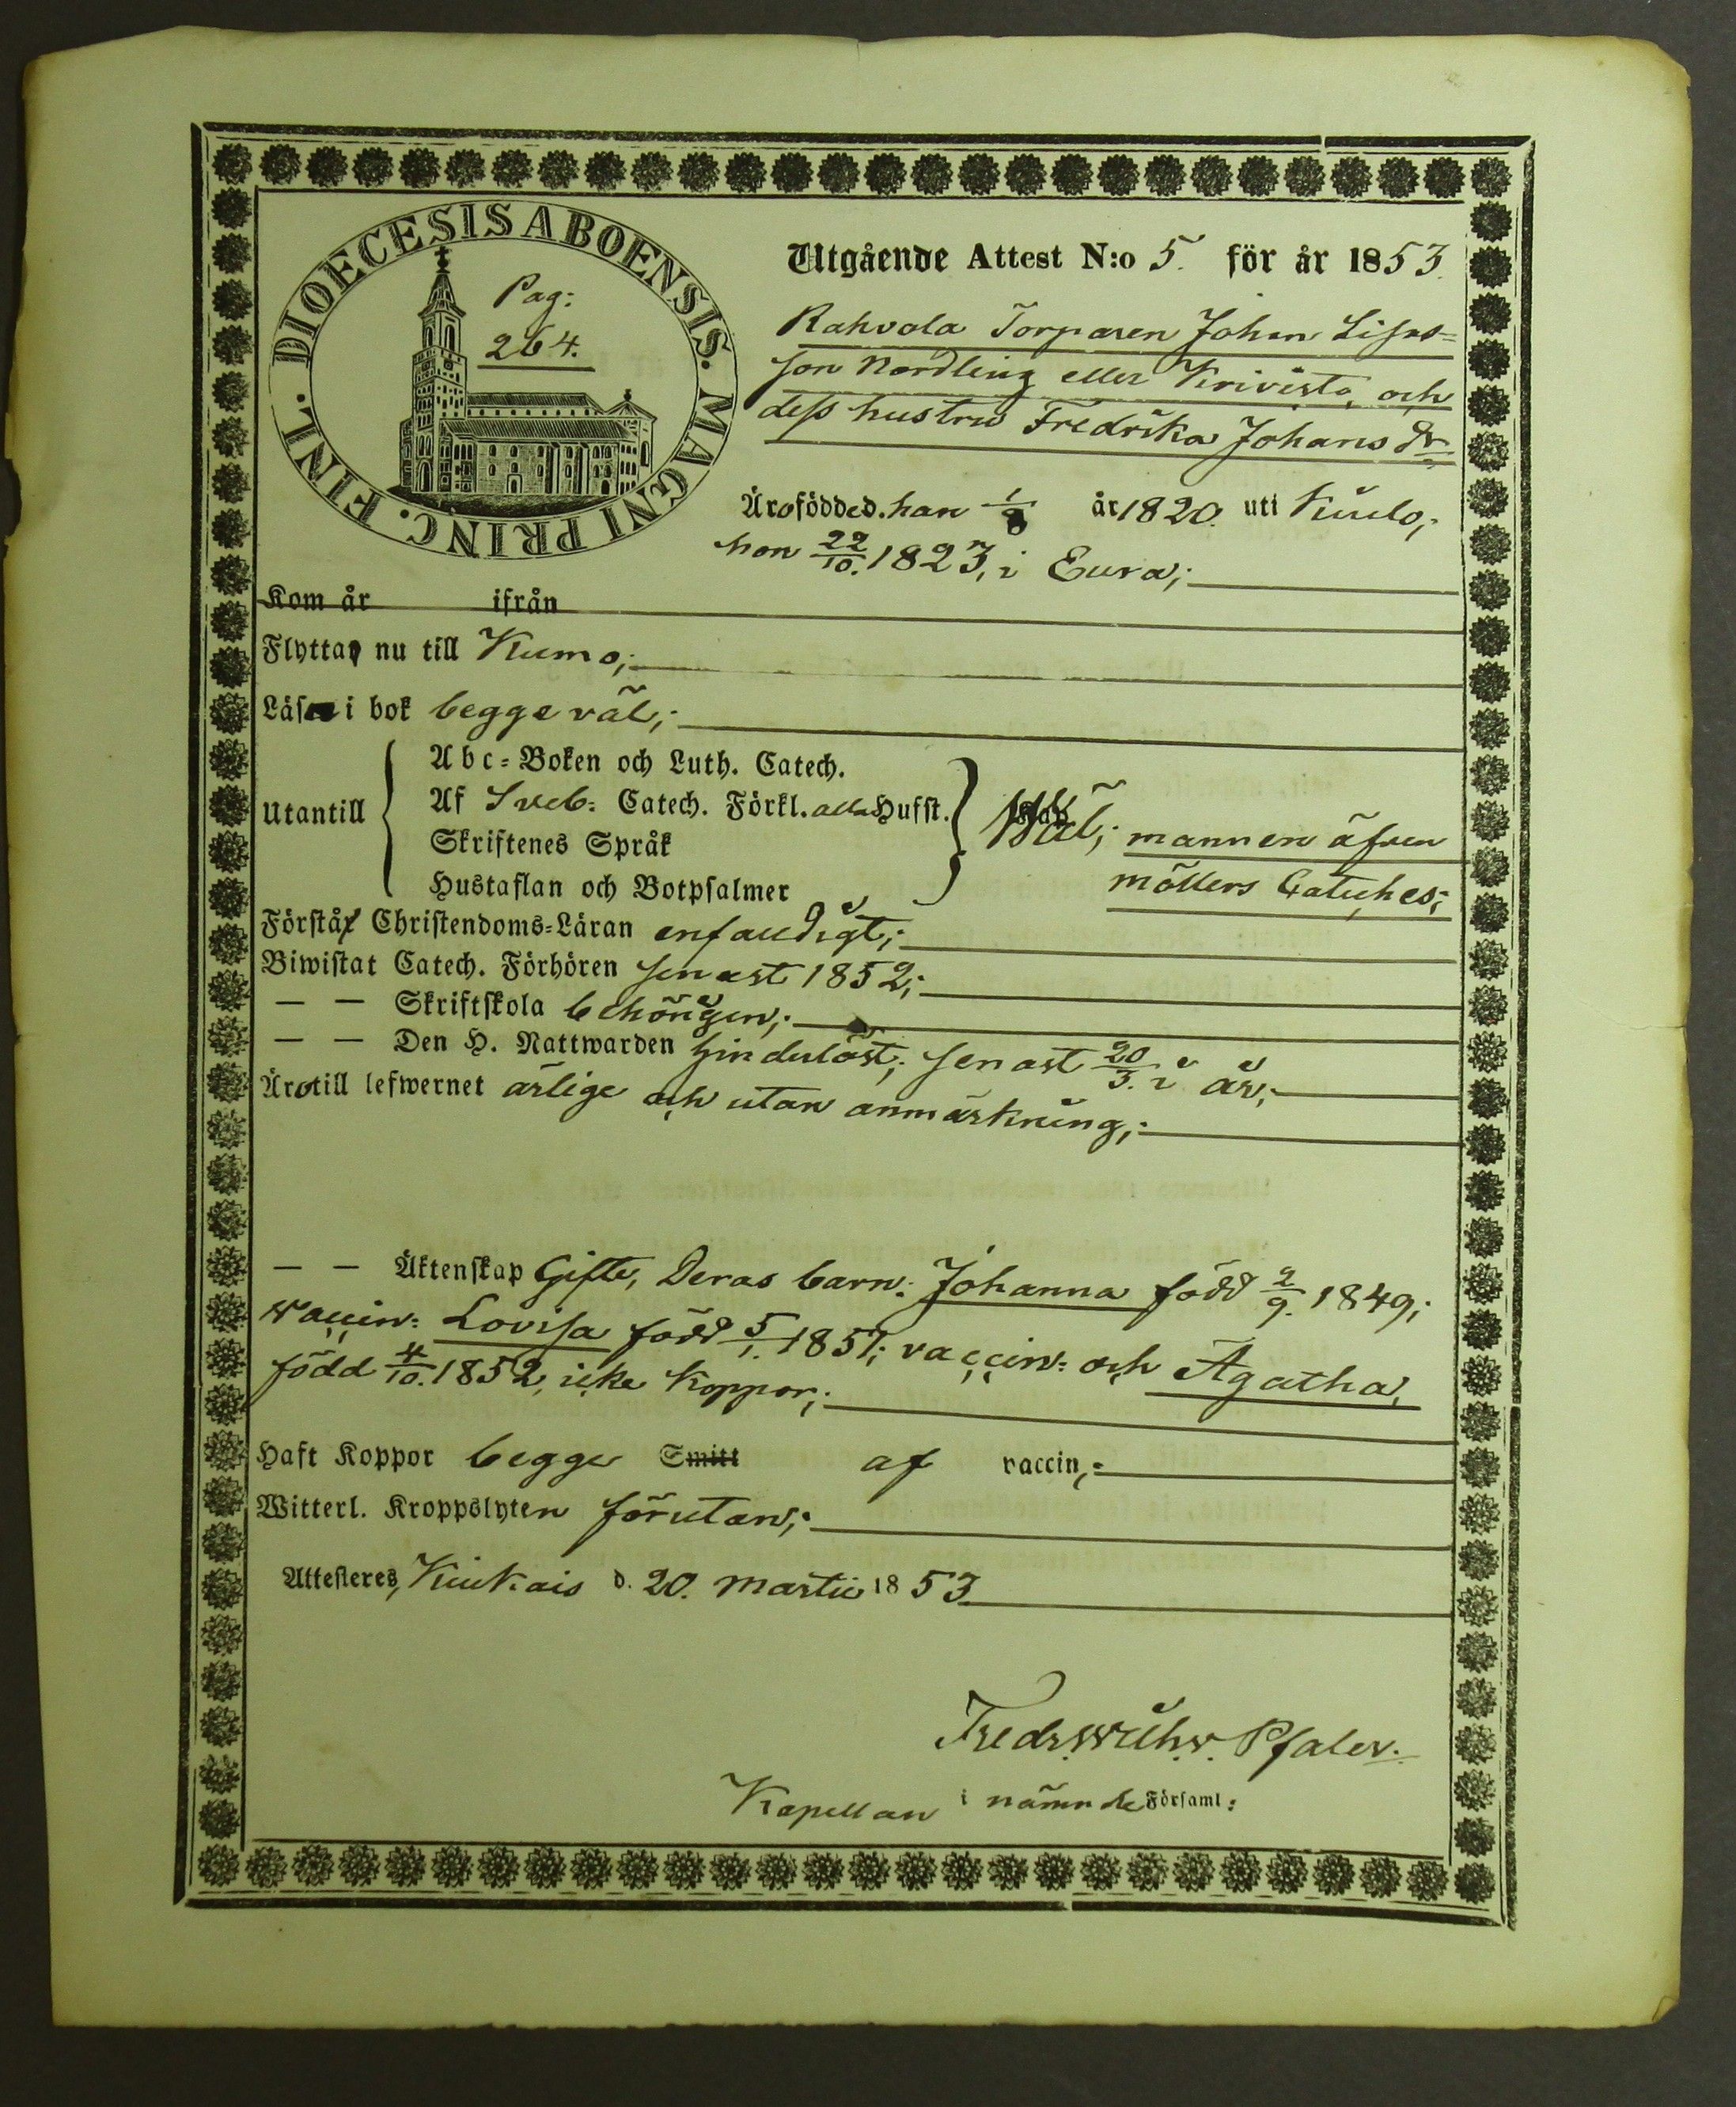 DIOECESIS ABOENSIS. MAGNI PRINC. FINL.
Pag:
264.
Utgående Attest N:o 5. för år 1853.
Rahvola Torparen Johan Lisas-
son Nordling eller Krivisto, och
dess hustru Fredrika Johans dr
Äro född ed. han 1/8 år 1820. uti Kiulo;
hon 22/10. 1823, i Eura;
Kom år ifrån
Flytta nu till Kumo;
Läsa i bok begge väl;
Utantill
Abc-Boken och Luth. Catech.
Af Sveb: Catech. Förkl. alla Husst.
Skriftenes Språk
Hustaflan och Botpsalmer
Wäl; mannen äfven
möllers Cateches;
Förstå Christendoms-Läran enfaldigt;
Biwistat Catech. Förhören senast 1852;
— — Skriftskola behörigen;
— — Den H. Nattwarden hinderlöst; senast 20/3. i år;
Äro till lefwernet ärlige och utan anmärkning;
— — Äktenskap Gifte, Deras barn: Johanna född 2/9. 1849;
vaccin: Lovisa född 5/1. 1851; vaccin: och Agatha,
född 4/10. 1852, icke koppor;
Haft Koppor begge Smitt af vaccin;
Witterl. Kroppslyten förutan;
Attesteres, Kiukais d. 20. Martii 1853
Fredr. Wilh. Pfaler.
Kapellan i nämnde Församl: